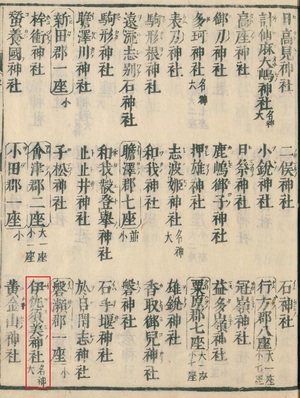 日高見神社　二俣神社　石神社
計仙麻大嶋神社名神大　小鋭神社　行方郡八座大一座小七座
高座神社　日祭神社　冠嶺神社
御刀神社　鹿嶋御子神社　益多嶺神社
多珂神社名神大　押雄神社　栗原郡七座大一座小六座
表刀神社　志波姬神社名神大　雄銳神社
駒形根神社　和我神社　香取御兒神社
遠流志別石神社　膽澤郡七座並小　磐神社
駒形神社　和我叡登擧神社　石手堰神社
膽澤川神社　止止井神社　於呂閇志神社
新田郡一座小　子松神社　磐瀨郡一座小
桙衝神社　會津郡二座大一座小一座　伊佐須美神社名神大
蠶養國神社　小田郡一座小　黃金山神社